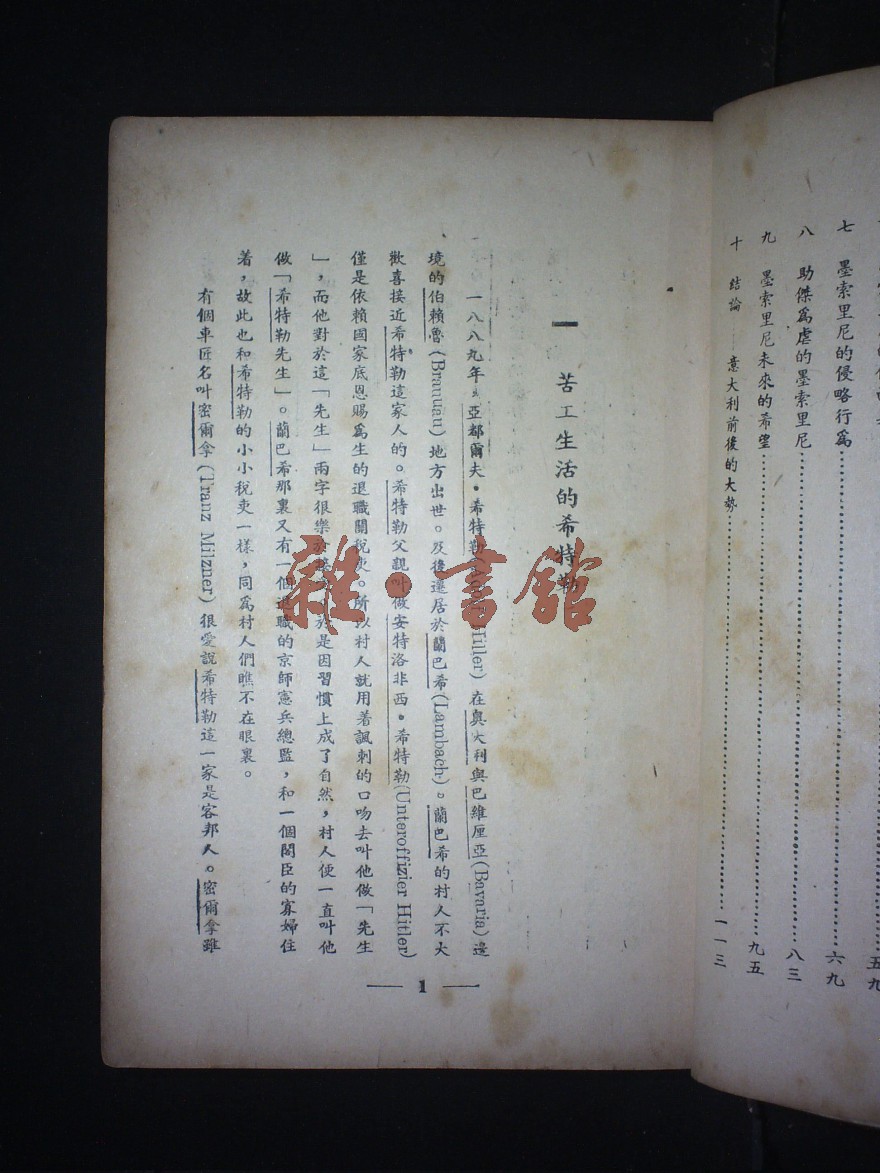 七　墨索里尼的侵略行爲……六九
八　助傑爲虐的墨索里尼……八三
九　墨索里尼未來的希望……九五
十　結論——意大利前後的大勢……一一三
一　苦工生活的希特勒
一八八九年，亞都爾夫·希特勒 Hitler) 在奧大利與巴維厘亞(Bavaria)邊
境的伯賴魯(Branuau)地方出世。及後遷居於蘭巴希(Lambach)。蘭巴希的村人不大
歡喜接近希特勒這家人的。希特勒父親叫做安特洛非西·希特勒(Unteroffizier Hitler)
僅是依賴國家底恩賜爲生的退職關稅吏。所以村人就用着諷刺的口吻去叫他做「先生
」，而他對於這「先生」兩字很樂於 於是因習慣上成了自然，村人便一直叫他
做「希特勒先生」。蘭巴希那裏又有一個退職的京師憲兵總監，和一個閣臣的寡婦住
着，故此也和希特勒的小小稅吏一樣，同爲村人們瞧不在眼裏。
有個車匠名叫密爾拿(Tranz Miizner)很愛說希特勒這一家是客邦人。密爾拿雖
— 1 —
雜·書館